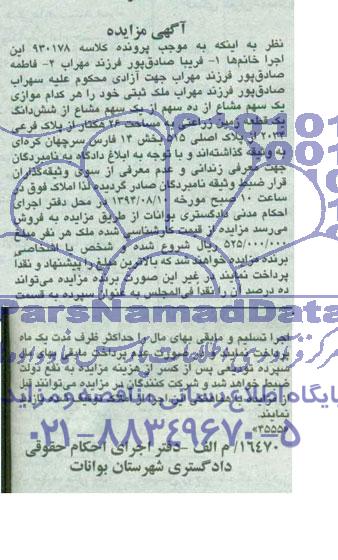 آگهی مزایده
نظر به اینکه به موجب پرونده کلاسه ۹۳۰۱۷۸ این
اجرا خانم‌ها ۱- فریبا صادق‌پور فرزند مهراب ۲- فاطمه
صادق‌پور فرزند مهراب جهت آزادی محکوم علیه سهراب
صادق‌پور فرزند مهراب ملک ثبتی خود را هر کدام موازی
یک سهم مشاع از ده سهم از یک سهم مشاع از شش‌دانگ
یک قطعه زمین زراعتی به مساحت ۲۶ هکتار از پلاک فرعی
از پلاک اصلی ۲۵ بخش ۱۴ فارس سرچهان کره‌ای
به وثیقه گذاشته‌اند و با توجه به ابلاغ دادگاه به نامبردگان
جهت معرفی زندانی و عدم معرفی از سوی وثیقه‌گذاران
قرار ضبط وثیقه نامبردگان صادر گردیده لذا املاک فوق در
ساعت ۱۰ صبح مورخه ۱۳۹۳/۰۸/۱۰ در محل دفتر اجرای
احکام مدنی دادگستری بوانات از طریق مزایده به فروش
می‌رسد مزایده از قیمت کارشناسی شده ملک هر نفر مبلغ
۵۲۵/۰۰۰/۰۰۰ ریال شروع شده و شخص یا اشخاصی
برنده مزایده خواهند شد که بالاترین مبلغ را پیشنهاد و نقدا
پرداخت نمایند در غیر این صورت برنده مزایده می‌تواند
ده درصد را نقدا فی‌المجلس به عنوان سپرده به قسمت
اجرا تسلیم و مابقی بهای مال را حداکثر ظرف مدت یک ماه
پرداخت نماید در صورت عدم پرداخت مابقی بهای
سپرده تودیعی پس از کسر هزینه مزایده به نفع دولت
ضبط خواهد شد و شرکت کنندگان در مزایده می‌توانند قبل
از مزایده با هماهنگی این اجرا از ملک
نمایند.
«۳۵۵۵»
۱۶۴۷۰/م الف -دفتر اجرای احکام حقوقی
دادگستری شهرستان بوانات
ParsNamadData
پایگاه اطلاع رسانی مناقصه و مزایده
۰۲۱-۸۸۳۴۹۶۷۰-۵